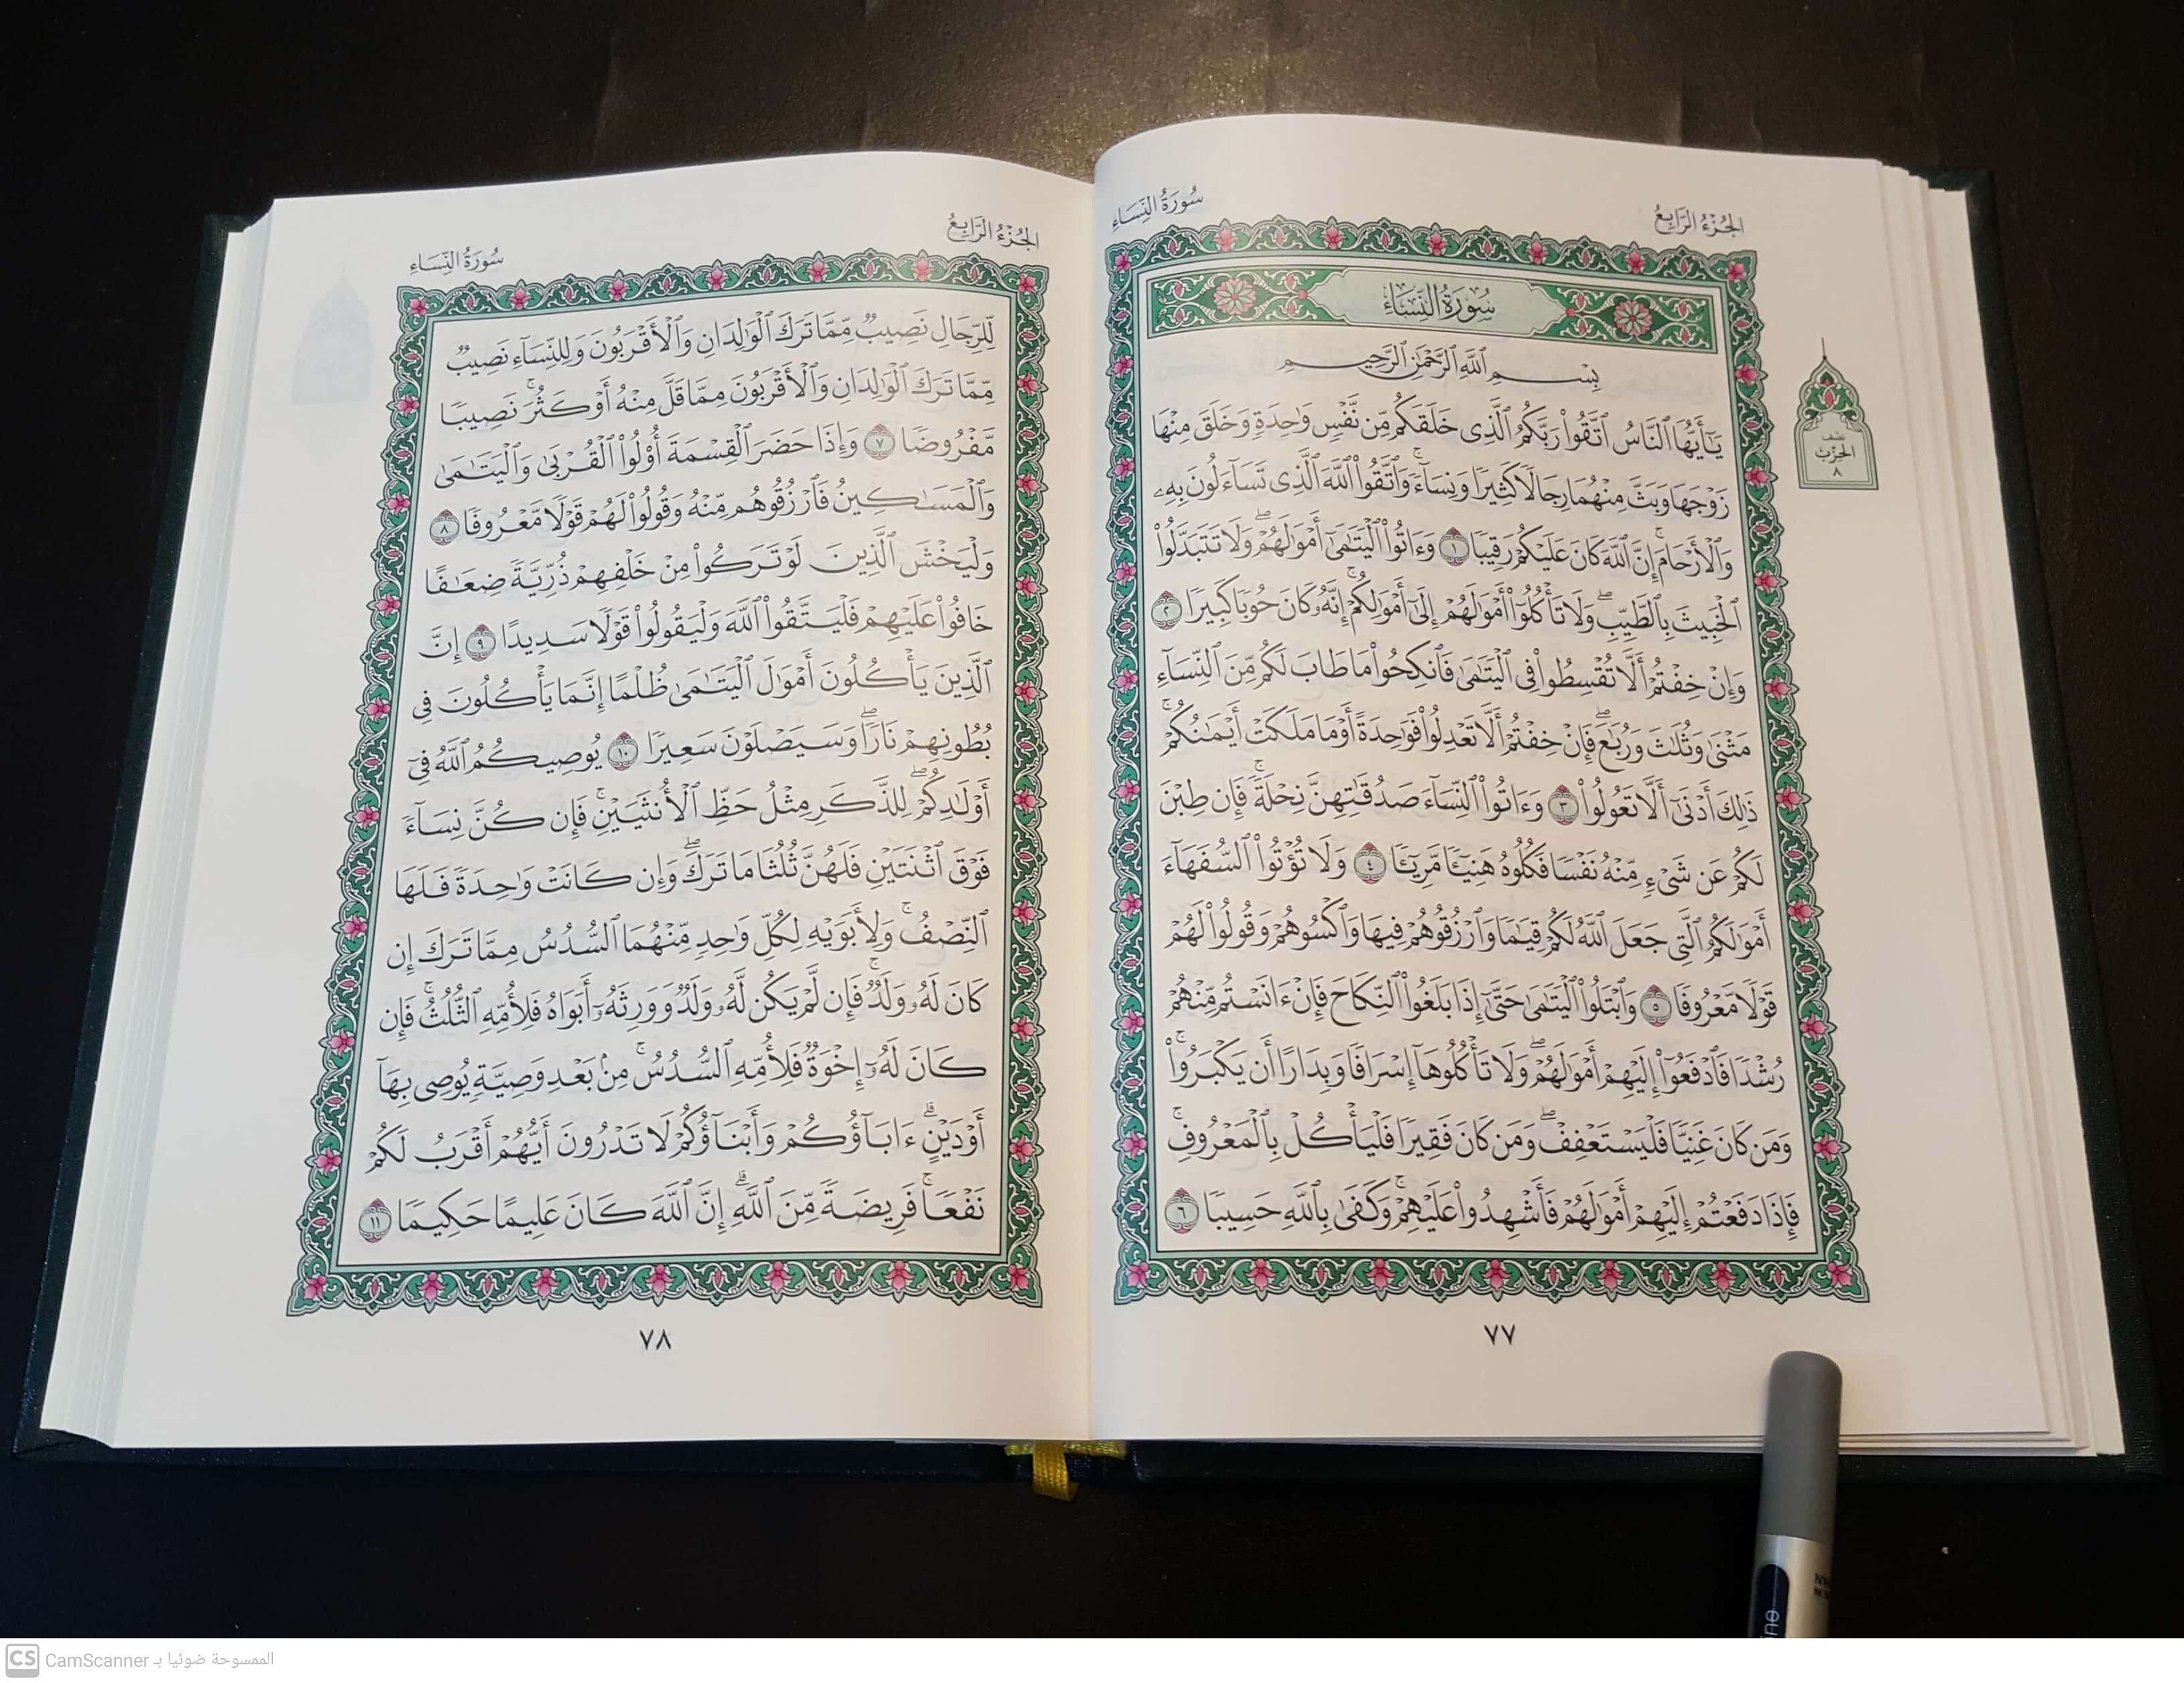 الجزء الرابع
سورة النساء
سُورَةُ النِّسَاءِ
بِسْمِ اللَّهِ الرَّحْمَٰنِ الرَّحِيمِ
يَٰٓأَيُّهَا ٱلنَّاسُ ٱتَّقُوا۟ رَبَّكُمُ ٱلَّذِى خَلَقَكُم مِّن نَّفْسٍ وَٰحِدَةٍ وَخَلَقَ مِنْهَا
زَوْجَهَا وَبَثَّ مِنْهُمَا رِجَالًا كَثِيرًا وَنِسَآءً ۚ وَٱتَّقُوا۟ ٱللَّهَ ٱلَّذِى تَسَآءَلُونَ بِهِۦ
وَٱلْأَرْحَامَ ۚ إِنَّ ٱللَّهَ كَانَ عَلَيْكُمْ رَقِيبًا ١ وَءَاتُوا۟ ٱلْيَتَٰمَىٰٓ أَمْوَٰلَهُمْ ۖ وَلَا تَتَبَدَّلُوا۟
ٱلْخَبِيثَ بِٱلطَّيِّبِ ۖ وَلَا تَأْكُلُوٓا۟ أَمْوَٰلَهُمْ إِلَىٰٓ أَمْوَٰلِكُمْ ۚ إِنَّهُۥ كَانَ حُوبًا كَبِيرًا ٢
وَإِنْ خِفْتُمْ أَلَّا تُقْسِطُوا۟ فِى ٱلْيَتَٰمَىٰ فَٱنكِحُوا۟ مَا طَابَ لَكُم مِّنَ ٱلنِّسَآءِ
مَثْنَىٰ وَثُلَٰثَ وَرُبَٰعَ ۖ فَإِنْ خِفْتُمْ أَلَّا تَعْدِلُوا۟ فَوَٰحِدَةً أَوْ مَا مَلَكَتْ أَيْمَٰنُكُمْ ۚ
ذَٰلِكَ أَدْنَىٰٓ أَلَّا تَعُولُوا۟ ٣ وَءَاتُوا۟ ٱلنِّسَآءَ صَدُقَٰتِهِنَّ نِحْلَةً ۚ فَإِن طِبْنَ
لَكُمْ عَن شَىْءٍ مِّنْهُ نَفْسًا فَكُلُوهُ هَنِيٓـًٔا مَّرِيٓـًٔا ٤ وَلَا تُؤْتُوا۟ ٱلسُّفَهَآءَ
أَمْوَٰلَكُمُ ٱلَّتِى جَعَلَ ٱللَّهُ لَكُمْ قِيَٰمًا وَٱرْزُقُوهُمْ فِيهَا وَٱكْسُوهُمْ وَقُولُوا۟ لَهُمْ
قَوْلًا مَّعْرُوفًا ٥ وَٱبْتَلُوا۟ ٱلْيَتَٰمَىٰ حَتَّىٰٓ إِذَا بَلَغُوا۟ ٱلنِّكَاحَ فَإِنْ ءَانَسْتُم مِّنْهُمْ
رُشْدًا فَٱدْفَعُوٓا۟ إِلَيْهِمْ أَمْوَٰلَهُمْ ۖ وَلَا تَأْكُلُوهَآ إِسْرَافًا وَبِدَارًا أَن يَكْبَرُوا۟ ۚ
وَمَن كَانَ غَنِيًّا فَلْيَسْتَعْفِفْ ۖ وَمَن كَانَ فَقِيرًا فَلْيَأْكُلْ بِٱلْمَعْرُوفِ ۚ
فَإِذَا دَفَعْتُمْ إِلَيْهِمْ أَمْوَٰلَهُمْ فَأَشْهِدُوا۟ عَلَيْهِمْ ۚ وَكَفَىٰ بِٱللَّهِ حَسِيبًا ٦
٧٧
نصف
الحزب
٨
الجزء الرابع
سورة النساء
لِّلرِّجَالِ نَصِيبٌ مِّمَّا تَرَكَ ٱلْوَٰلِدَانِ وَٱلْأَقْرَبُونَ وَلِلنِّسَآءِ نَصِيبٌ
مِّمَّا تَرَكَ ٱلْوَٰلِدَانِ وَٱلْأَقْرَبُونَ مِمَّا قَلَّ مِنْهُ أَوْ كَثُرَ ۚ نَصِيبًا
مَّفْرُوضًا ٧ وَإِذَا حَضَرَ ٱلْقِسْمَةَ أُو۟لُوا۟ ٱلْقُرْبَىٰ وَٱلْيَتَٰمَىٰ
وَٱلْمَسَٰكِينُ فَٱرْزُقُوهُم مِّنْهُ وَقُولُوا۟ لَهُمْ قَوْلًا مَّعْرُوفًا ٨
وَلْيَخْشَ ٱلَّذِينَ لَوْ تَرَكُوا۟ مِنْ خَلْفِهِمْ ذُرِّيَّةً ضِعَٰفًا
خَافُوا۟ عَلَيْهِمْ فَلْيَتَّقُوا۟ ٱللَّهَ وَلْيَقُولُوا۟ قَوْلًا سَدِيدًا ٩ إِنَّ
ٱلَّذِينَ يَأْكُلُونَ أَمْوَٰلَ ٱلْيَتَٰمَىٰ ظُلْمًا إِنَّمَا يَأْكُلُونَ فِى
بُطُونِهِمْ نَارًا ۖ وَسَيَصْلَوْنَ سَعِيرًا ١٠ يُوصِيكُمُ ٱللَّهُ فِىٓ
أَوْلَٰدِكُمْ ۖ لِلذَّكَرِ مِثْلُ حَظِّ ٱلْأُنثَيَيْنِ ۚ فَإِن كُنَّ نِسَآءً
فَوْقَ ٱثْنَتَيْنِ فَلَهُنَّ ثُلُثَا مَا تَرَكَ ۖ وَإِن كَانَتْ وَٰحِدَةً فَلَهَا
ٱلنِّصْفُ ۚ وَلِأَبَوَيْهِ لِكُلِّ وَٰحِدٍ مِّنْهُمَا ٱلسُّدُسُ مِمَّا تَرَكَ إِن
كَانَ لَهُۥ وَلَدٌ ۚ فَإِن لَّمْ يَكُن لَّهُۥ وَلَدٌ وَوَرِثَهُۥٓ أَبَوَاهُ فَلِأُمِّهِ ٱلثُّلُثُ ۚ فَإِن
كَانَ لَهُۥٓ إِخْوَةٌ فَلِأُمِّهِ ٱلسُّدُسُ ۚ مِنۢ بَعْدِ وَصِيَّةٍ يُوصِى بِهَآ
أَوْ دَيْنٍ ۗ ءَابَآؤُكُمْ وَأَبْنَآؤُكُمْ لَا تَدْرُونَ أَيُّهُمْ أَقْرَبُ لَكُمْ
نَفْعًا ۚ فَرِيضَةً مِّنَ ٱللَّهِ ۗ إِنَّ ٱللَّهَ كَانَ عَلِيمًا حَكِيمًا ١١
٧٨
CS CamScanner الممسوحة ضوئيا بـ